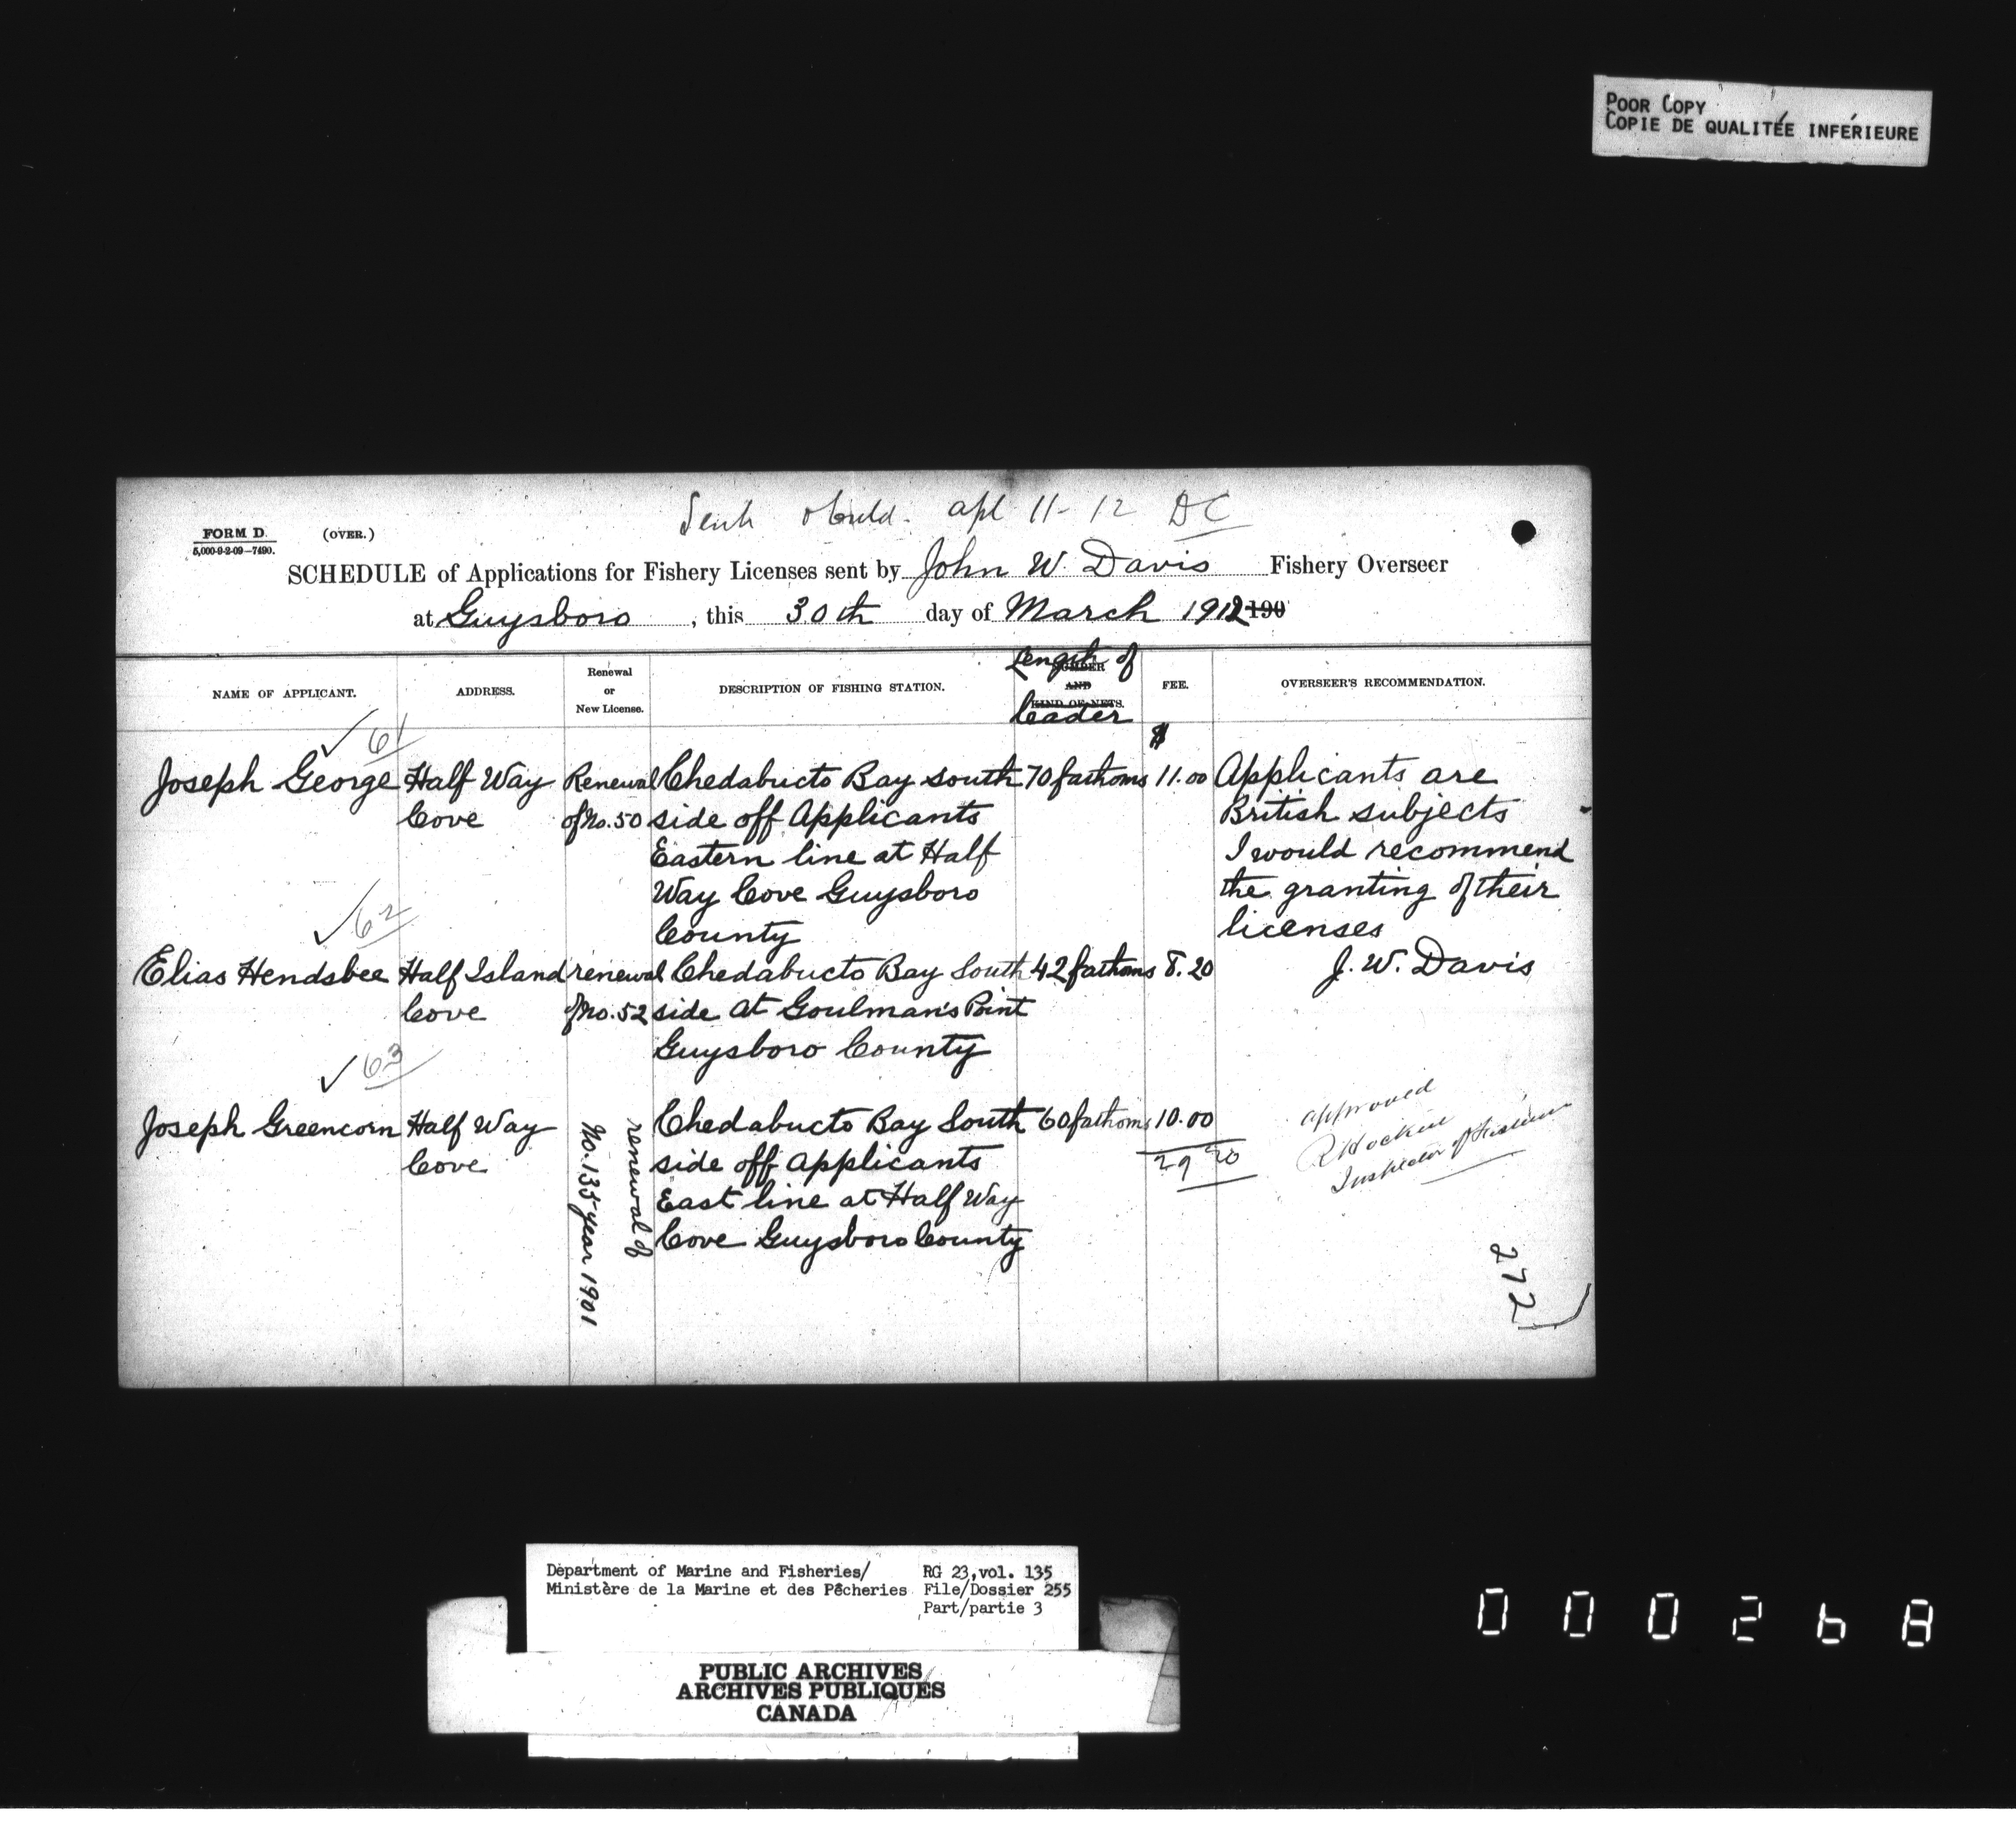 POOR COPY
COPIE DE QUALITÉE INFÉRIEURE
apl 11-12 DC
FORM D. (OVER.)
5,000-9-2-09—7490.
SCHEDULE of Applications for Fishery Licenses sent by John W. Davis Fishery Overseer
at Guysboro, this 30th day of March 1912 190
NAME OF APPLICANT. ADDRESS. Renewal or New License. DESCRIPTION OF FISHING STATION. NUMBER AND KIND OF NETS. Length of Leader FEE. OVERSEER'S RECOMMENDATION.
$
✓ 61
Joseph George Half Way Renewal Chedabucto Bay south 70 fathoms 11.00 Applicants are
Cove of No. 50 side off Applicants British subjects
Eastern line at Half I would recommend
Way Cove Guysboro the granting of their
County licenses
✓ 62
Elias Hendsbee Half Island renewal Chedabucto Bay South 42 fathoms 8.20 J. W. Davis
Cove of No. 52 side at Goulman's Point
Guysboro County
✓ 63
Joseph Greencorn Half Way renewal of Chedabucto Bay South 60 fathoms 10.00 approved
Cove No. 135 year 1901 side off applicants 29 20 R Hockin
East line at Half Way Inspector of Fisheries
Cove Guysboro County
272
Department of Marine and Fisheries/ RG 23, vol. 135
Ministère de la Marine et des Pêcheries File/Dossier 255
Part/partie 3
PUBLIC ARCHIVES
ARCHIVES PUBLIQUES
CANADA
000268